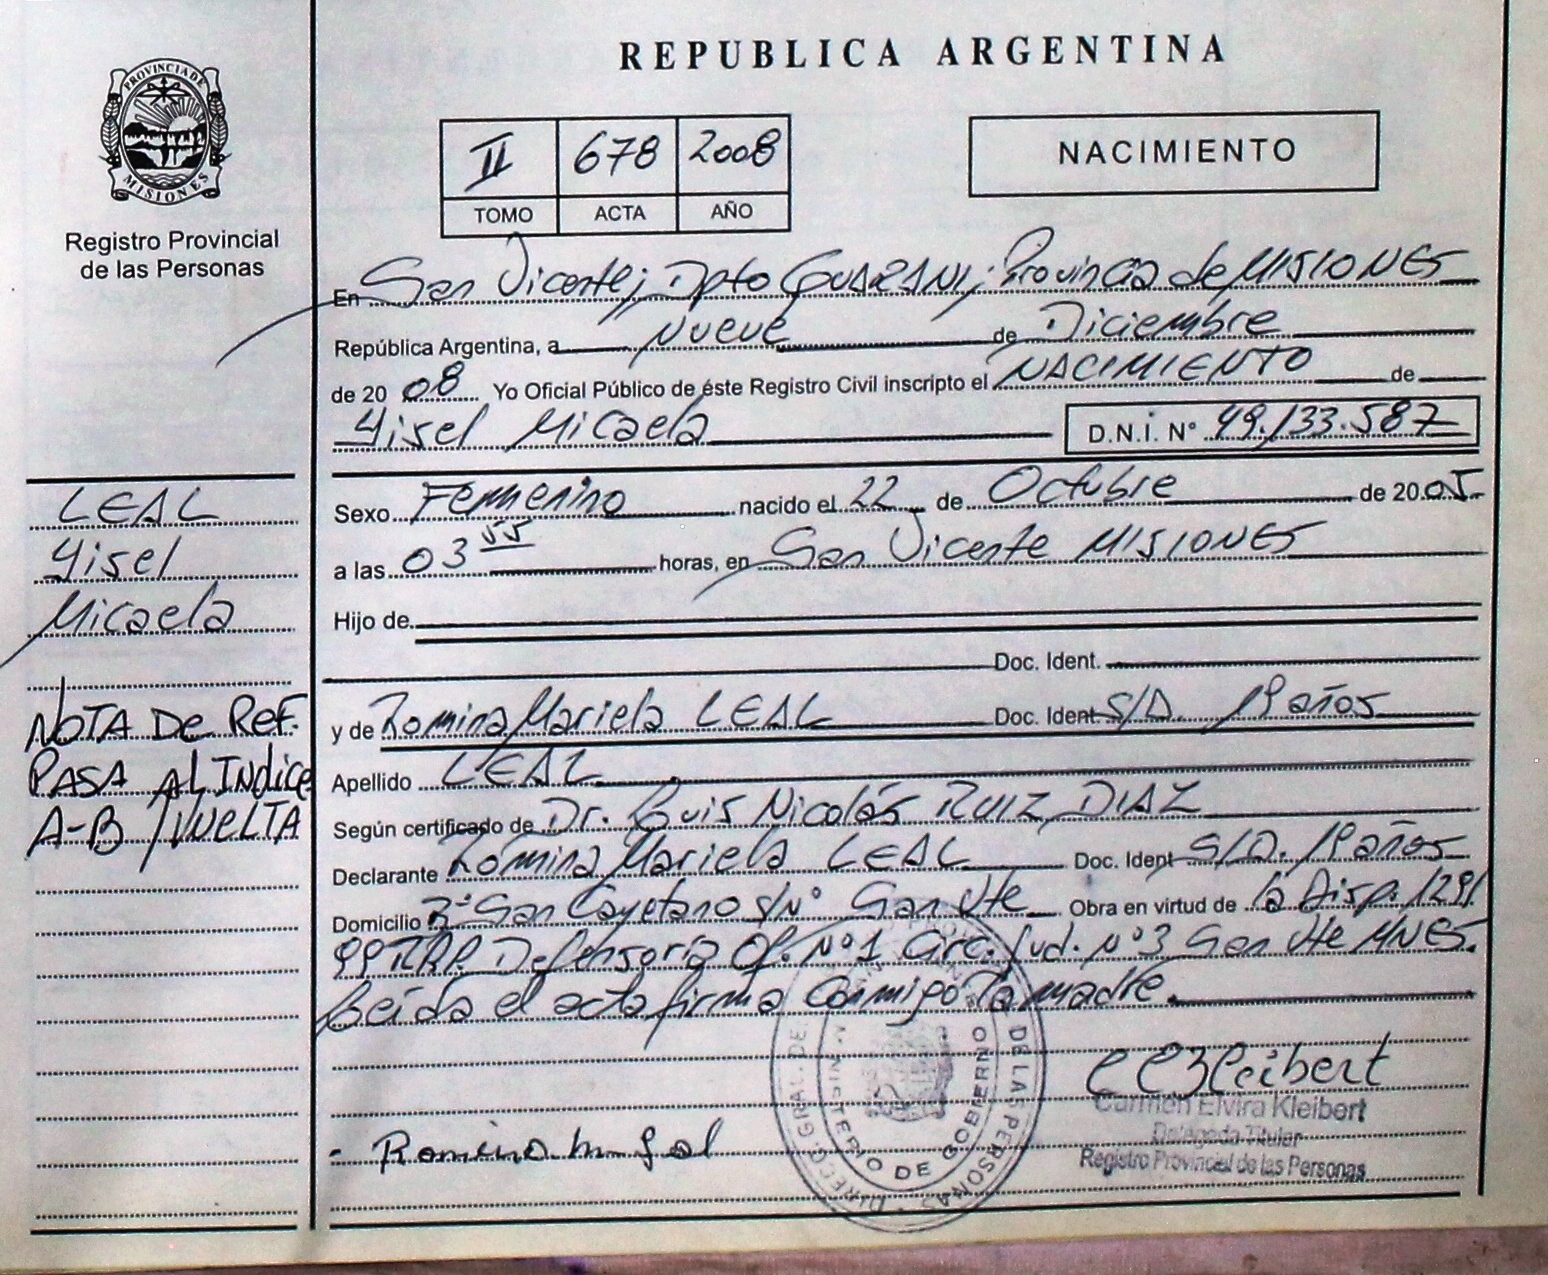 REPUBLICA ARGENTINA
PROVINCIA DE
MISIONES
Registro Provincial
de las Personas
II 678 2008
TOMO ACTA AÑO
NACIMIENTO
En San Vicente, Dpto GUARANI, Provincia de MISIONES
República Argentina, a nueve de Diciembre
de 20 08 Yo Oficial Público de éste Registro Civil inscripto el NACIMIENTO de
Yisel Micaela D.N.I. N° 49.133.587
Sexo Femenino nacido el 22 de Octubre de 20 05
a las 03 55 horas, en San Vicente MISIONES
Hijo de
Doc. Ident.
y de Romina Mariela LEAL Doc. Ident S/D. 19 años
Apellido LEAL
Según certificado de Dr. Luis Nicolás RUIZ DIAZ
Declarante Romina Mariela LEAL Doc. Ident S/D. 19 años
Domicilio San Cayetano S/N° San Vte Obra en virtud de la Disp. 1291
99 Defensoría Of. N°1 Circ. Jud. N°3 San Vte MNES.
Leída el acta firma conmigo la madre
LEAL
Yisel
Micaela
NOTA DE REF.
PASA AL INDICE
A-B /VUELTA
Romina M
Kleibert
Carmen Elvira Kleibert
Delegada Titular
Registro Provincial de las Personas
DIRECC. GRAL. DE
DE LAS PERSONAS
MINISTERIO DE GOBIERNO